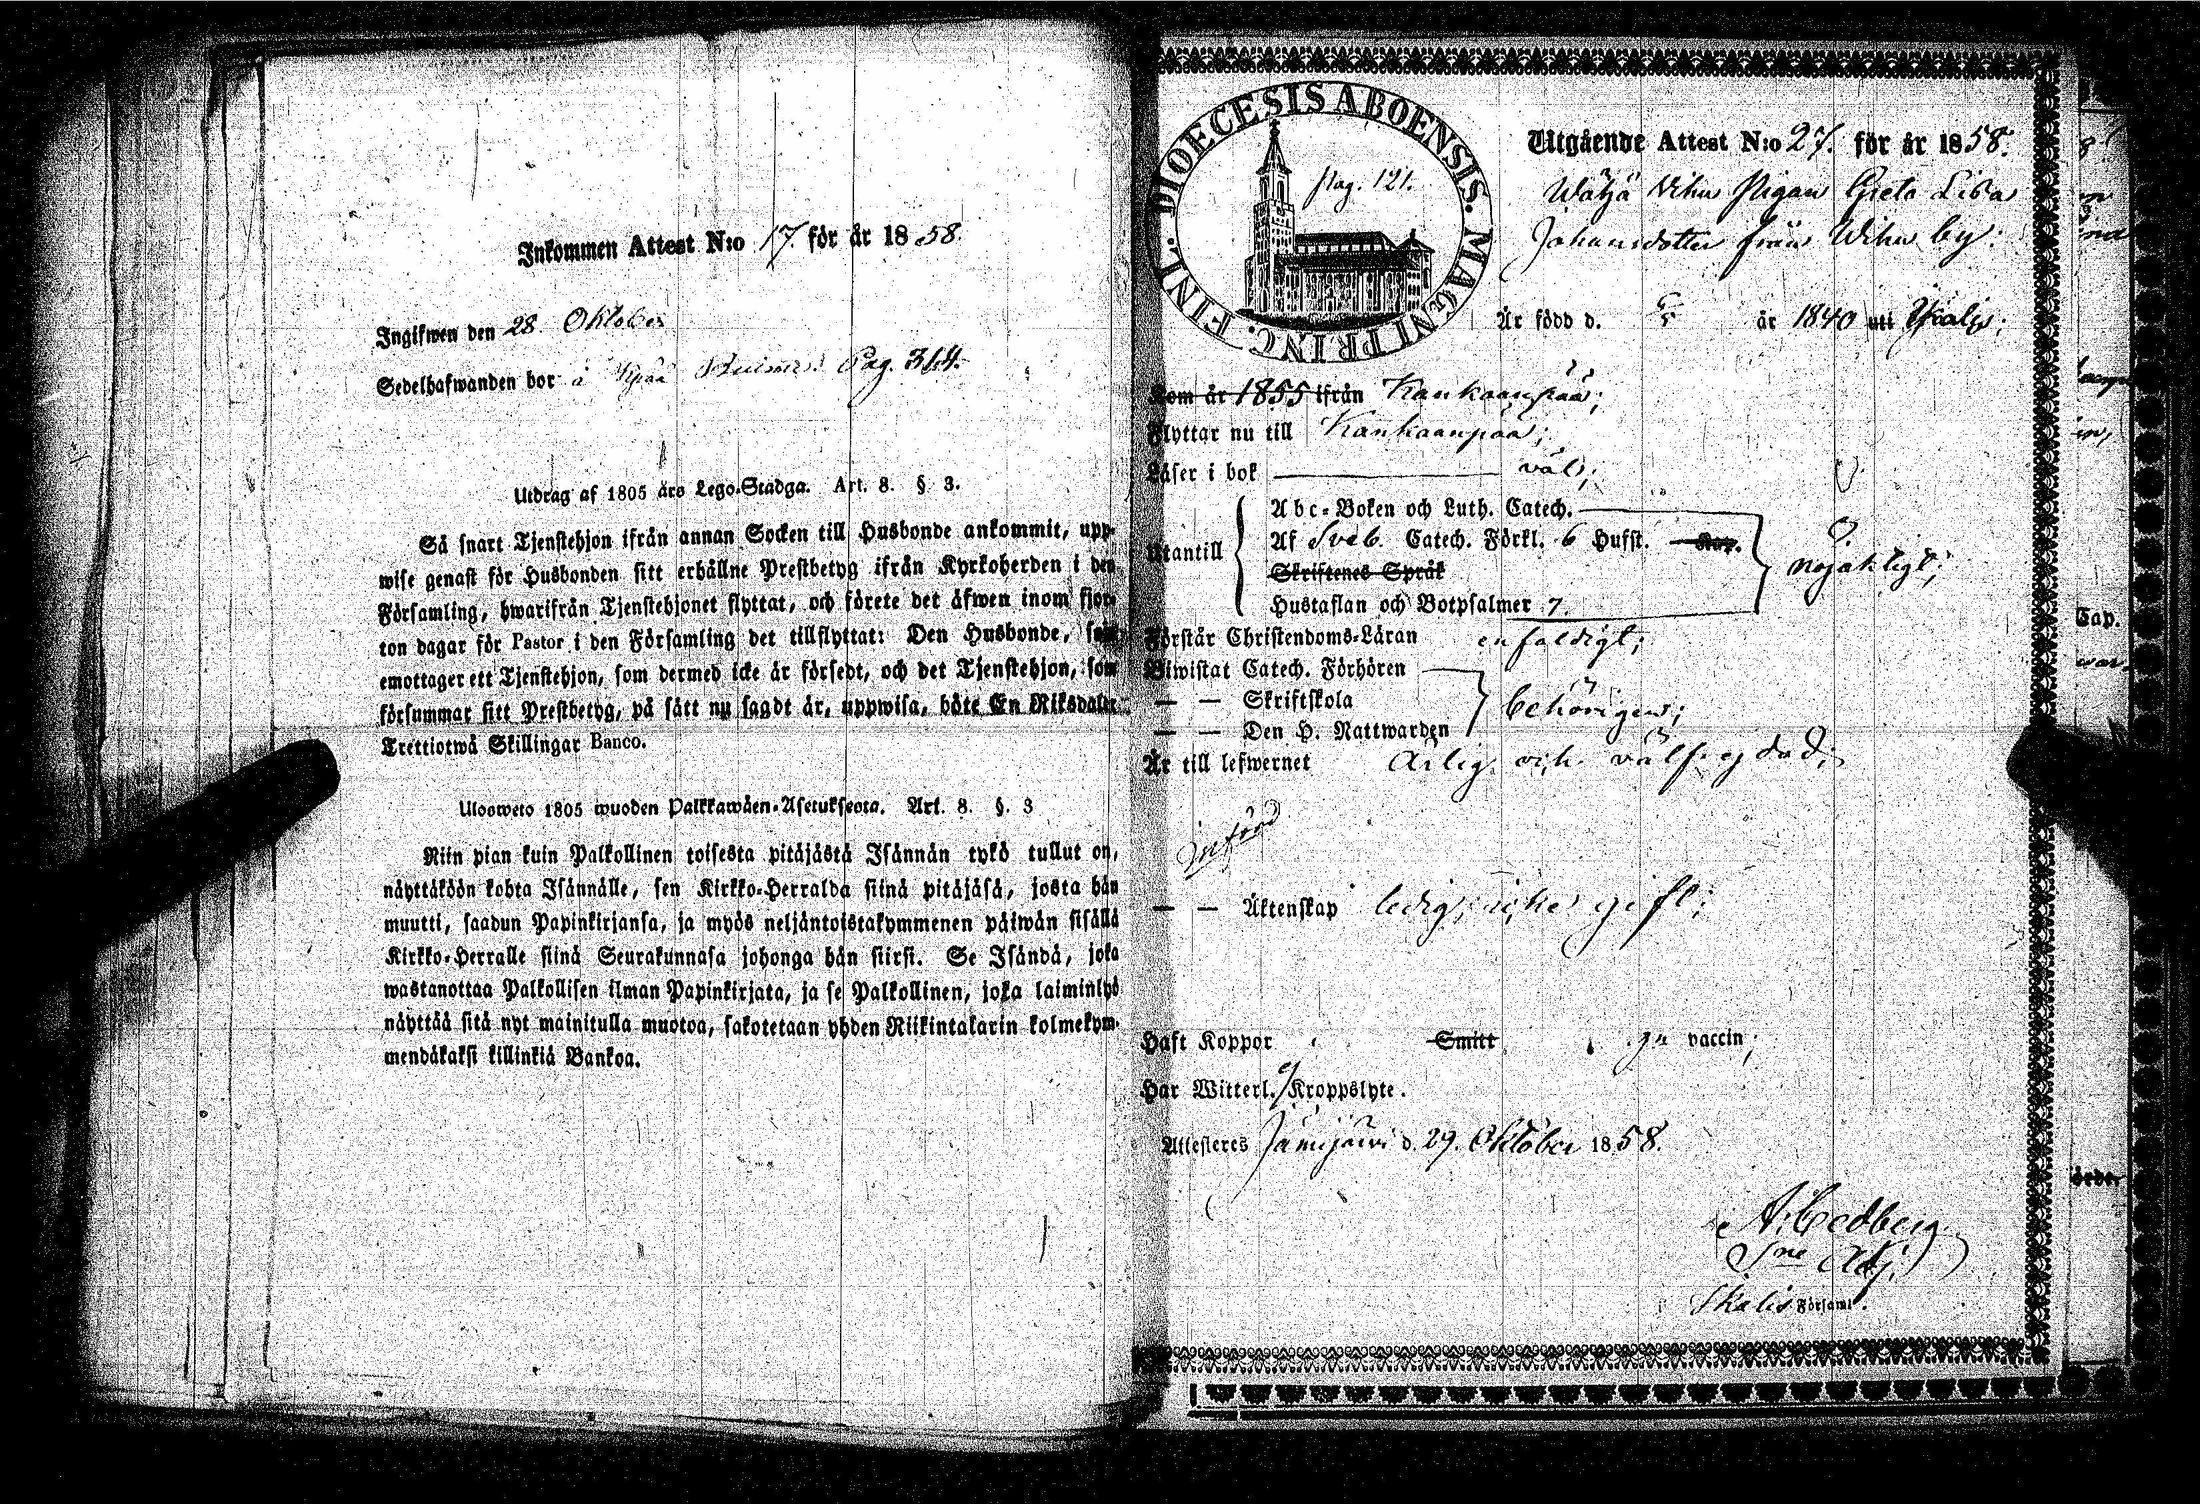 Inkommen Attest N:o 17. för år 1858.
Ingifwen den 28 Oktober
Sedelhafwanden bor å Pag. 314.
Utdrag af 1805 års Lego-Stadga. Art. 8. § 3.
Så snart Tjenstehjon ifrån annan Socken till Husbonde ankommit, upp-
wise genast för Husbonden sitt erhållne Prestbetyg ifrån Kyrkoherden i den
Församling, hwarifrån Tjenstehjonet flyttat, och förete det äfwen inom fjor-
ton dagar för Pastor i den Församling det tillflyttat: Den Husbonde, som
emottager ett Tjenstehjon, som dermed icke är försedt, och det Tjenstehjon, som
försummar sitt Prestbetyg, på sätt nu sagdt är, uppwisa, böte En Riksdaler
Trettiotwå Skillingar Banco.
Ulosweto 1805 wuoden Palkkawäen-Asetuksesta. Art. 8. §. 3
Niin pian kuin Palkollinen toisesta pitäjästä Isännän tykö tullut on,
näyttäköön kohta Isännälle, sen Kirkko-Herralda siinä pitäjäsä, josta hän
muutti, saadun Papinkirjansa, ja myös neljäntoistakymmenen päiwän sisällä
Kirkko-Herralle siinä Seurakunnasa johonga hän siirsi. Se Isändä, joka
wastanottaa Palkollisen ilman Papinkirjata, ja se Palkollinen, joka laiminlyö
näyttää sitä nyt mainitulla muotoa, sakotetaan yhden Riikintalarin kolmekym-
mendäkaksi killinkiä Bankoa.
DIOECESIS ABOENSIS. MAGNI PRINC. FINL.
Pag. 121.
Utgående Attest N:o 27. för år 1858.
Wähä Wihu Pigan Greta Lisa
Johansdotter från Wihu by:
Är född d. 5/5 år 1840 uti Ikalis;
Kom år 1855 ifrån Kankaanpää;
Flyttar nu till Kankaanpää;
Läser i bok väl;
Utantill
Abc-Boken och Luth. Catech.
Af Sveb. Catech. Förkl. 6 Hufst. Kap.
Skriftenes Språk
nöjaktigt;
Hustaflan och Botpsalmer 7.
Förstår Christendoms-Läran enfaldigt;
Biwistat Catech. Förhören
— — Skriftskola
behörigen;
— — Den H. Nattwarden
Är till lefwernet Ärlig och välfrejdad;
införd
— — Äktenskap ledig, icke gift;
Haft Koppor Smitt gn vaccin;
Har Witterl. ej Kroppslyte.
Attesteres Jämijärvi d. 29. Oktober 1858.
A. Cedberg
Sne Adj.
Ikalis Församl.